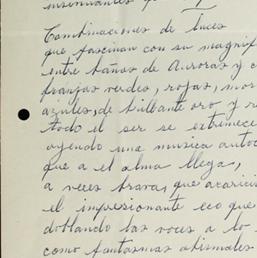 Combinaciones de luces
que fascinan con su magnif
entre baños de Auroras y c
franjas verdes, rojas, mor
azules, de brillante oro y r
todo el ser se estremece
oyendo una musica autoc
que a el alma llega,
a veces brava, que acarici
el impresionante eco que
doblando las voces a lo
como fantasmas abismales